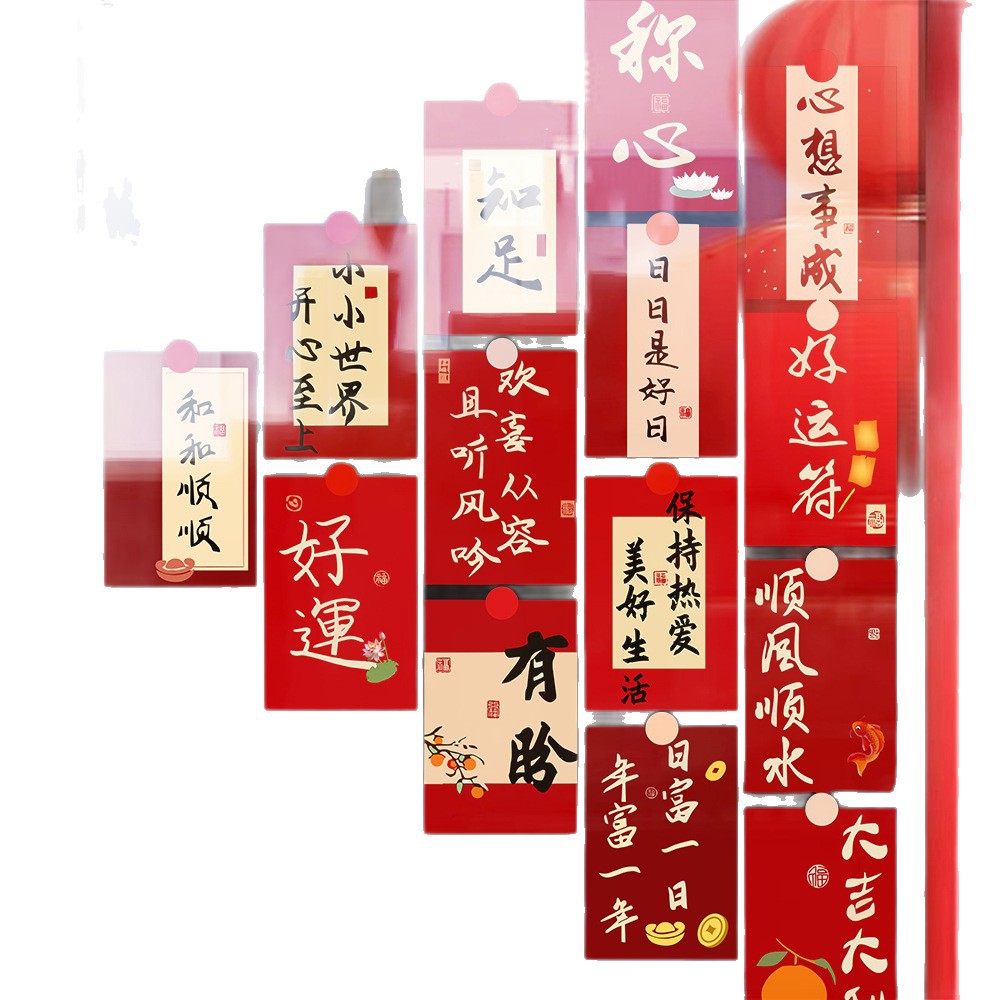 和和顺顺
小小世界
开心至上
好運
知足
欢喜从容
且听风吟
有盼
称心
日日是好日
保持热爱
美好生活
日富一日
年富一年
心想事成
好运符
顺风顺水
大吉大利